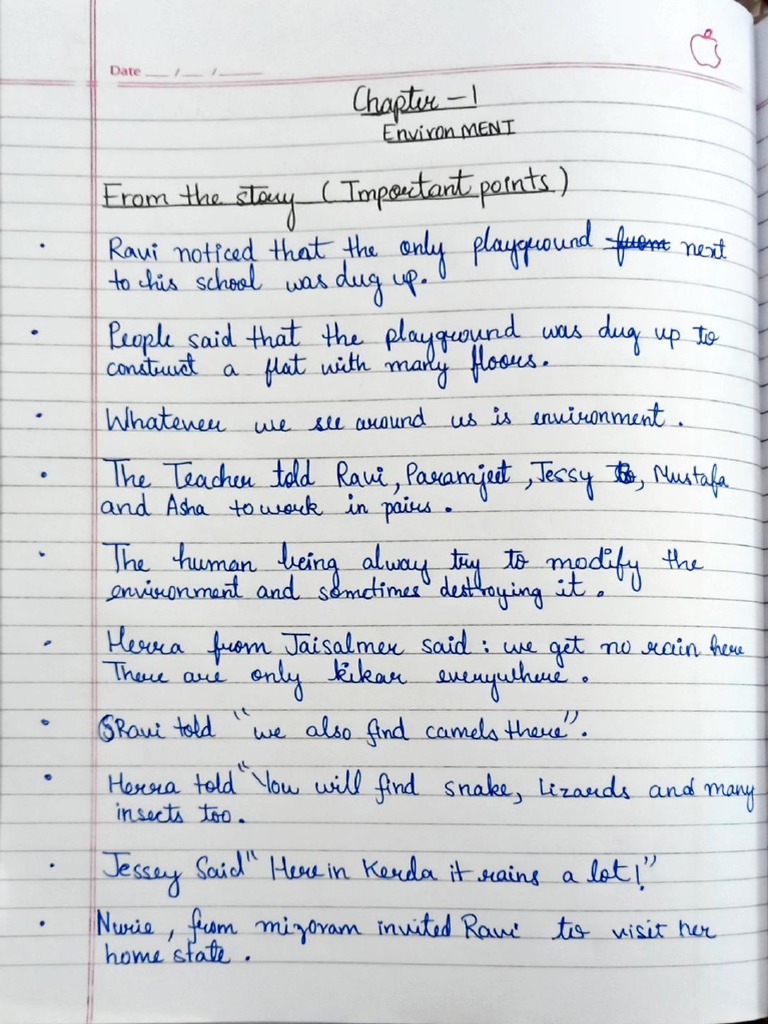 Date __/__/____
Chapter - 1
EnvironMENT
From the story (Important points)
• Ravi noticed that the only playground ~~from~~ next
to his school was dug up.
• People said that the playground was dug up to
construct a flat with many floors.
• Whatever we see around us is environment.
• The Teacher told Ravi, Paramjeet, Jessy, Mustafa
and Asha to work in pairs.
• The human being alway try to modify the
environment and somtimes destroying it.
• Herra from Jaisalmer said : we get no rain here
There are only kikar everywhere.
• Ravi told "we also find camels there".
• Herra told "You will find snake, Lizards and many
insects too.
• Jessey Said "Here in Kerda it rains a lot!"
• Nurie, from mizoram invited Ravi to visit her
home state.